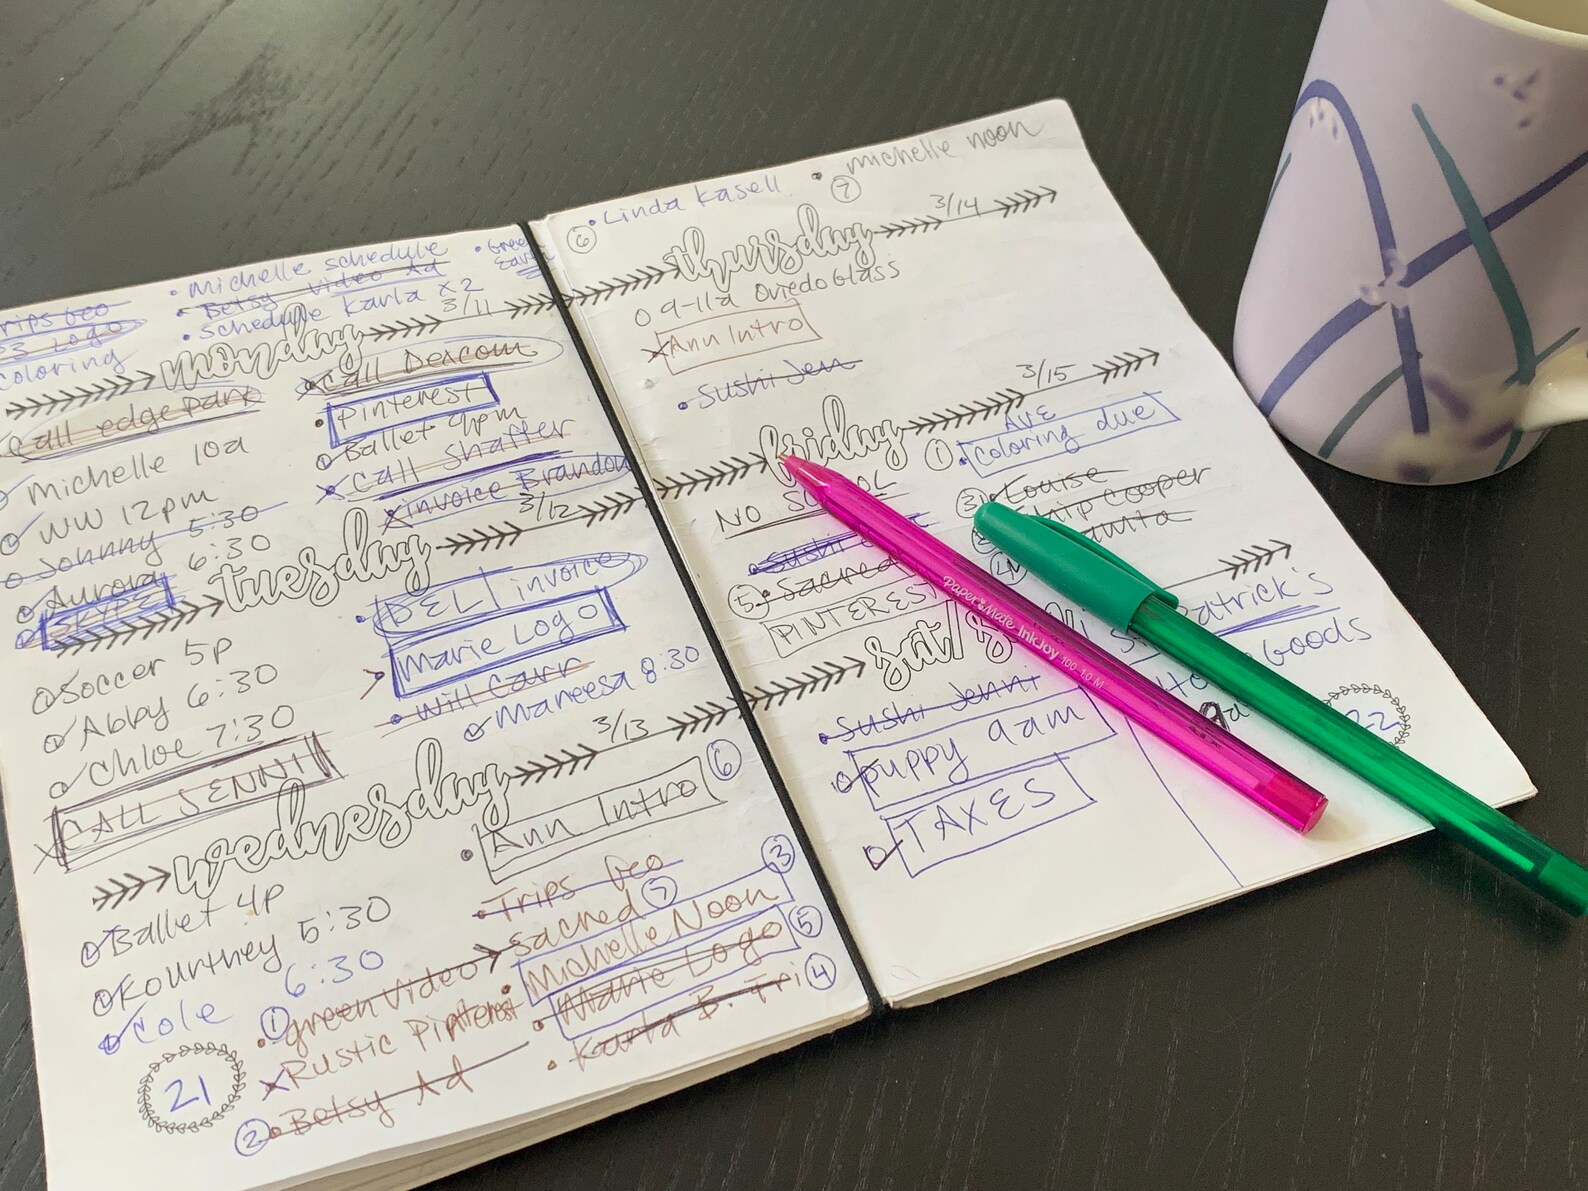 • Michelle schedule
• Betsy Video Ad
• Schedule Karla x2
• Green
Earth
Trips Geo
Logo
Coloring
monday
3/11
Call edge park
Michelle 10a
WW 12pm
Johnny 5:30
Aurora 6:30
SKYPE
Call Dexcom
Pinterest
Ballet 4pm
Call Shaffer
invoice Brandon
tuesday
3/12
Soccer 5p
Abby 6:30
Chloe 7:30
CALL JENNI
DEL invoice
Marie Logo
• Will Carr
Mareesa 8:30
wednesday
3/13
Ballet 4p
Kourtney 5:30
Cole 6:30
① green video
Rustic Pinterest
② Betsy Ad
Ann Intro ⑥
• Trips Geo
sacred ⑦
Michelle Noon ③
• Marie Logo ⑤
• Karla B. Fri ④
21
⑥ • Linda Kasell
• michelle noon
⑦
thursday
3/14
9-11a Oviedo Glass
Ann Intro
• Sushi Jen
friday
3/15
NO SCHOOL
• Sushi
⑤ • Sacred
PINTEREST
AVE
① • Coloring due
③ • Louise
Cooper
④
sat/
• Sushi Jenni
puppy 9am
TAXES
Patrick's
Goods
9a
22
Paper Mate InkJoy 100 1.0 M